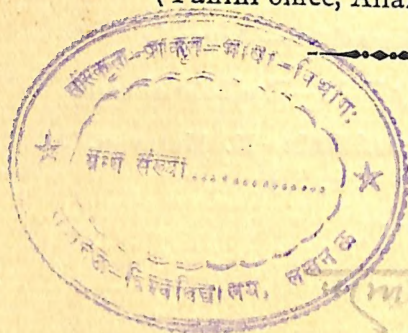 ( Panini office, Allah
संस्कृत-प्राकृत-भाषा-विभागः
ग्रन्थ संख्या...............
विश्वविद्यालय, लखनऊ